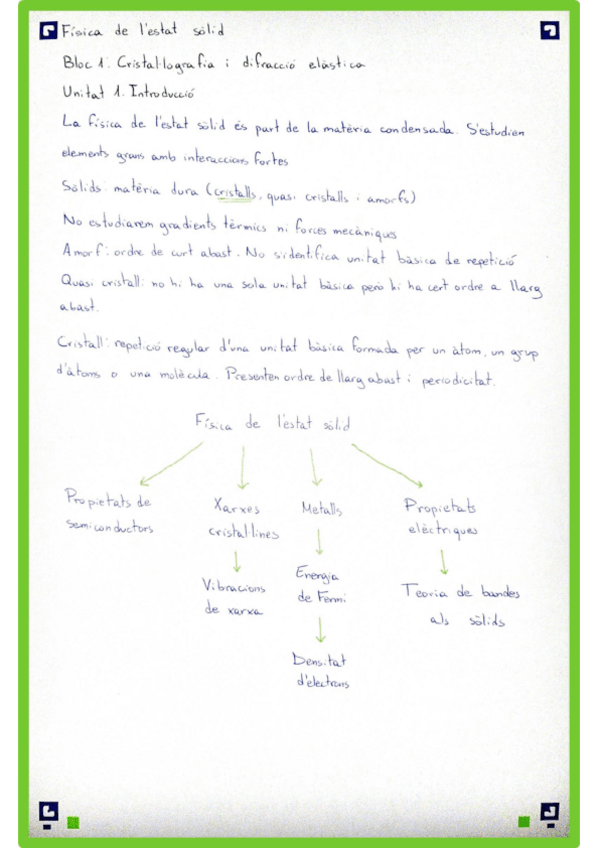 Física de l'estat sòlid
Bloc 1. Cristal·lografia i difracció elàstica
Unitat 1. Introducció
La física de l'estat sòlid és part de la matèria condensada. S'estudien
elements grans amb interaccions fortes
Sòlids: matèria dura (cristalls, quasi cristalls i amorfs)
No estudiarem gradients tèrmics ni forces mecàniques
Amorf: ordre de curt abast. No s'identifica unitat bàsica de repetició
Quasi cristall: no hi ha una sola unitat bàsica però hi ha cert ordre a llarg
abast.
Cristall: repetició regular d'una unitat bàsica formada per un àtom, un grup
d'àtoms o una molècula. Presenten ordre de llarg abast i periodicitat.
Física de l'estat sòlid
Propietats de
semiconductors
Xarxes
cristal·lines
Vibracions
de xarxa
Metalls
Energia
de Fermi
Densitat
d'electrons
Propietats
elèctriques
Teoria de bandes
als sòlids